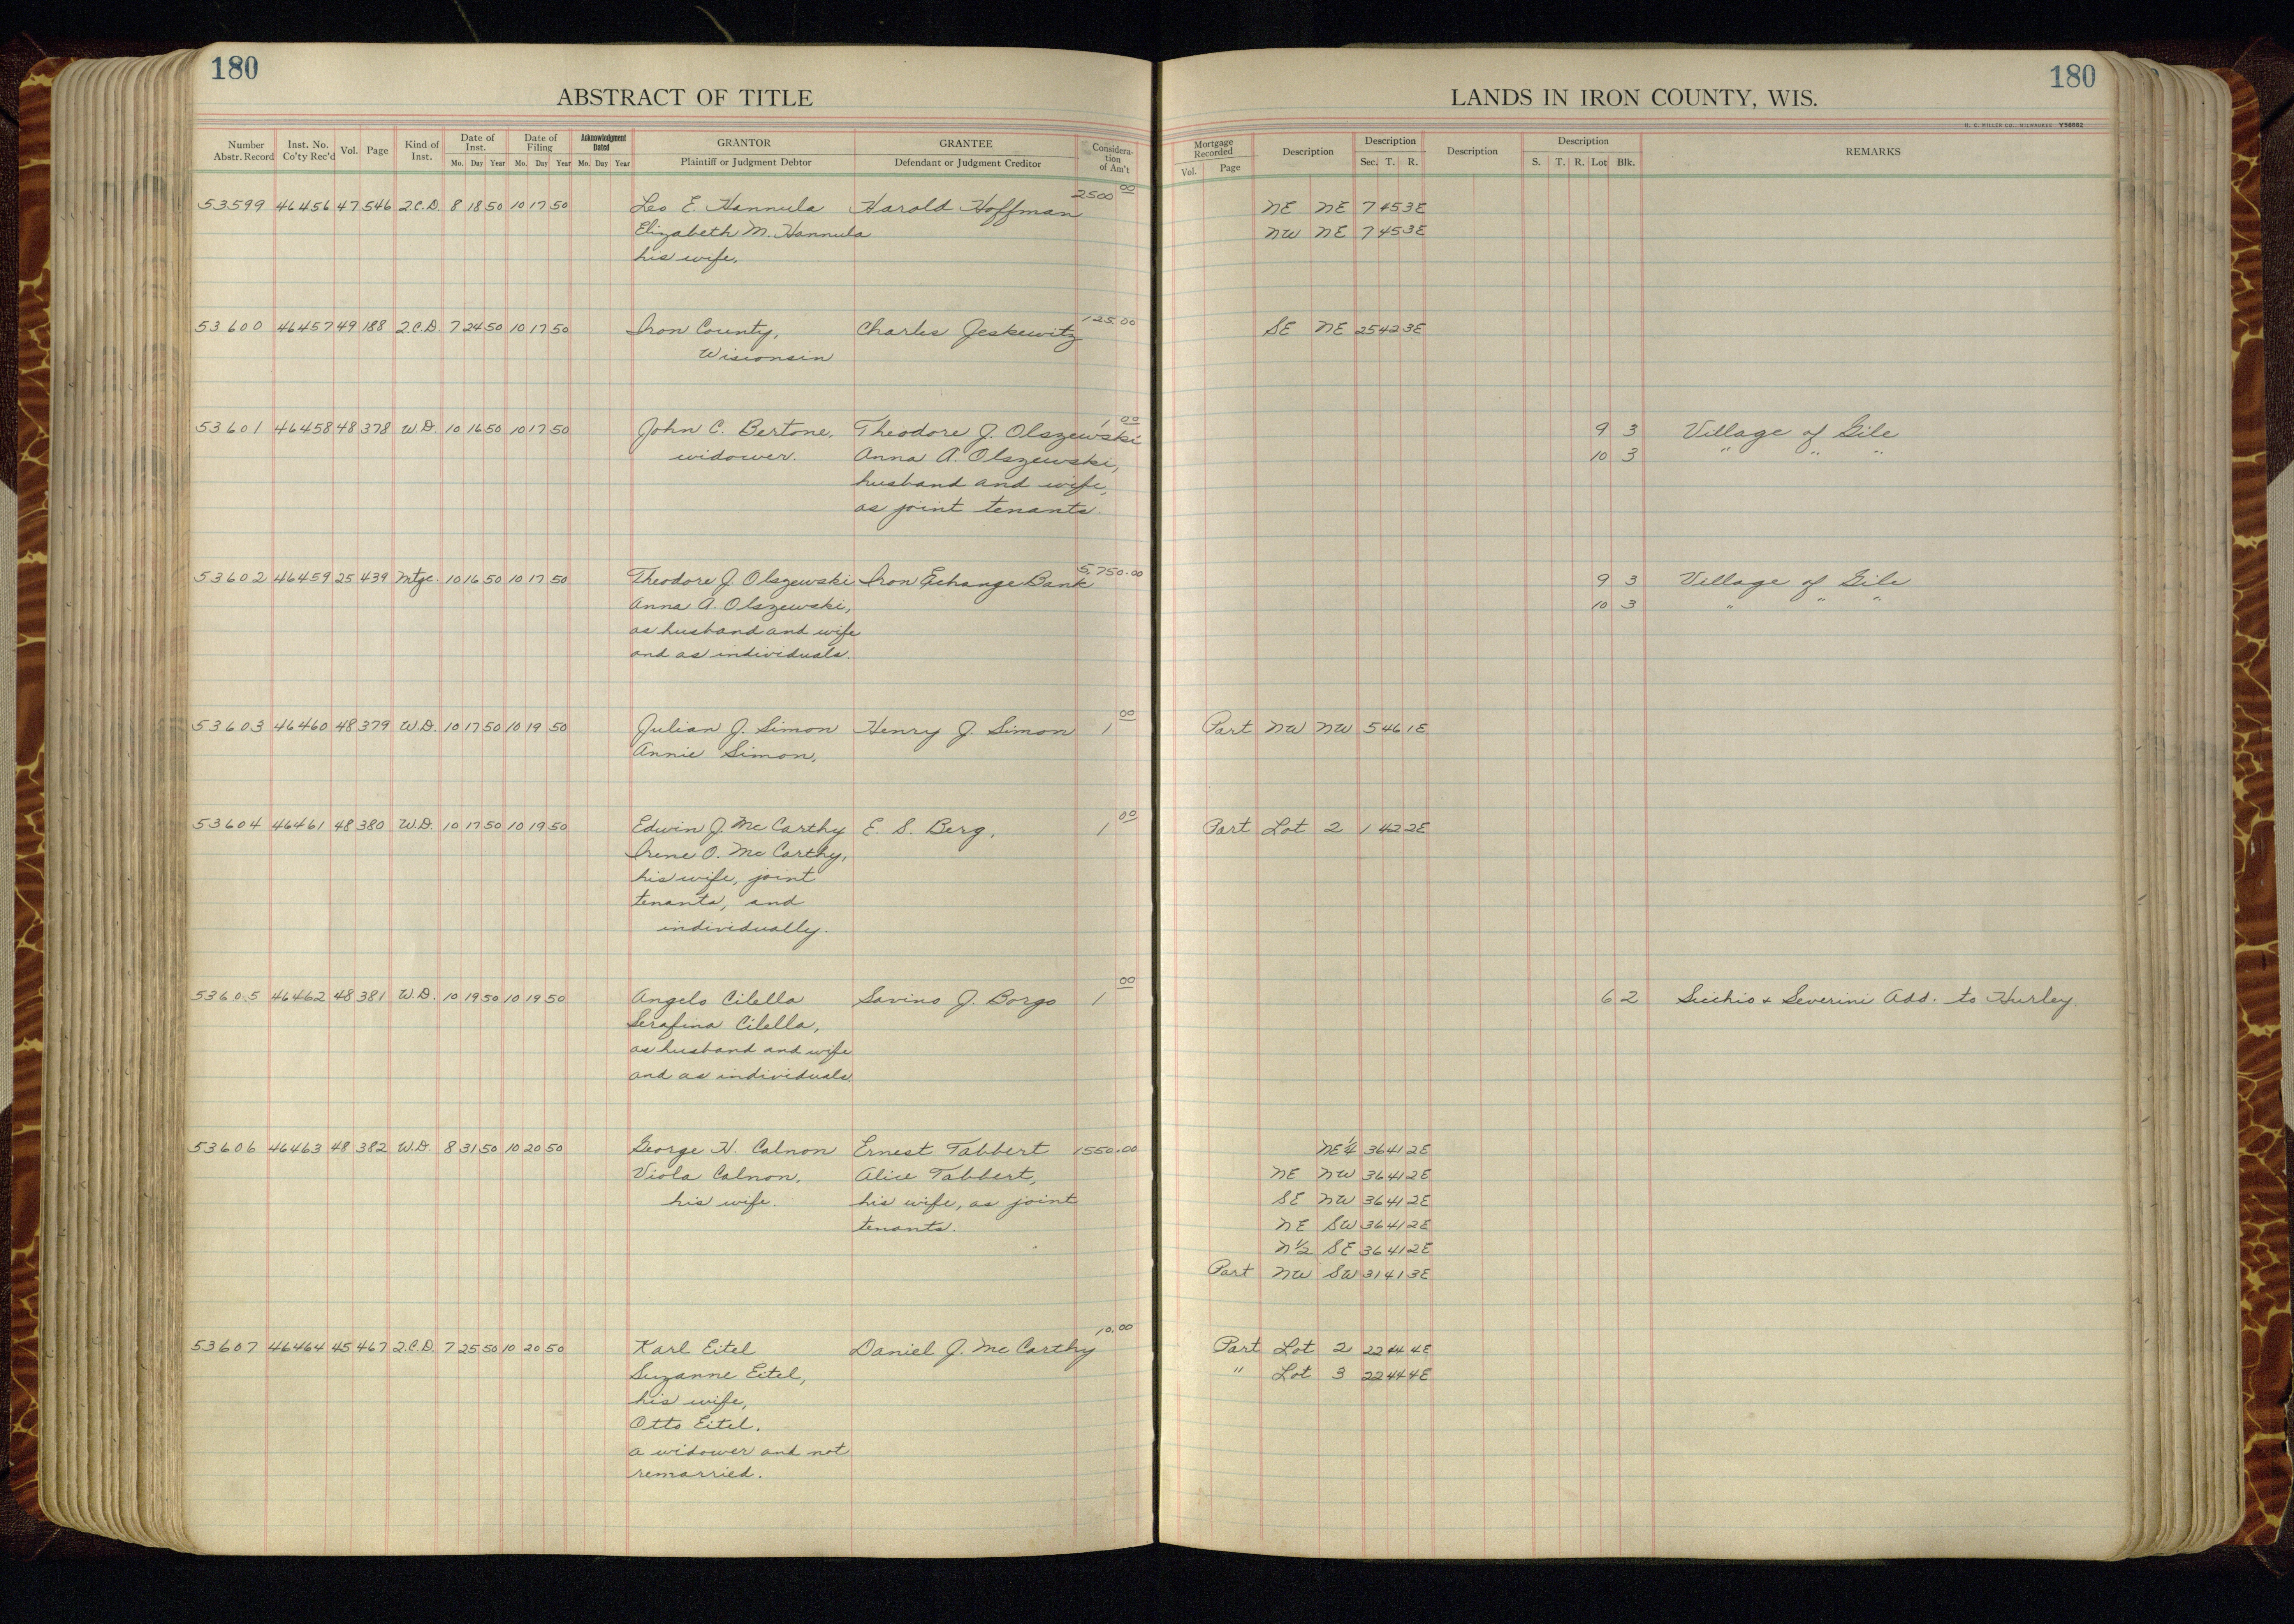 180
ABSTRACT OF TITLE
Number Abstr. Record Inst. No. Co'ty Rec'd Vol. Page Kind of Inst. Date of Inst. Mo. Day Year Date of Filing Mo. Day Year Acknowledgment Dated Mo. Day Year GRANTOR Plaintiff or Judgment Debtor GRANTEE Defendant or Judgment Creditor Considera-tion of Am't
53599 46456 47 546 2.C.D. 8 18 50 10 17 50 Leo E. Hannula Harold Hoffman 2500 00
Elizabeth M. Hannula
his wife.
53600 46457 49 188 2.C.D. 7 24 50 10 17 50 Iron County, Charles Jeskewitz 125.00
Wisconsin
53601 46458 48 378 W.D. 10 16 50 10 17 50 John C. Bertone, Theodore J. Olszewski 1 00
widower. Anna A. Olszewski,
husband and wife,
as joint tenants.
53602 46459 25 439 Mtge. 10 16 50 10 17 50 Theodore J. Olszewski Iron Exchange Bank 5,750.00
Anna A. Olszewski,
as husband and wife
and as individuals.
53603 46460 48 379 W.D. 10 17 50 10 19 50 Julian J. Simon Henry J. Simon 1 00
Annie Simon,
53604 46461 48 380 W.D. 10 17 50 10 19 50 Edwin J. McCarthy E. S. Berg, 1 00
Irene O. McCarthy,
his wife, joint
tenants, and
individually.
53605 46462 48 381 W.D. 10 19 50 10 19 50 Angelo Cilella Savino J. Borgo 1 00
Serafina Cilella,
as husband and wife
and as individuals.
53606 46463 48 382 W.D. 8 31 50 10 20 50 George H. Calnon Ernest Tabbert 1550.00
Viola Calnon, Alice Tabbert,
his wife. his wife, as joint
tenants.
53607 46464 45 467 2.C.D. 7 25 50 10 20 50 Karl Eitel Daniel J. McCarthy 10.00
Suzanne Eitel,
his wife,
Otto Eitel,
a widower and not
remarried.
180
LANDS IN IRON COUNTY, WIS.
H. C. MILLER CO., MILWAUKEE Y56662
Mortgage Recorded Vol. Page Description Description Sec. T. R. Description Description S. T. R. Lot Blk. REMARKS
NE NE 7 45 3E
NW NE 7 45 3E
SE NE 25 42 3E
9 3 Village of Gile
10 3 " " "
9 3 Village of Gile
10 3 " " "
Part NW NW 5 46 1E
Part Lot 2 1 42 2E
6 2 Sicchio + Severini Add. to Hurley.
NE 1/4 36 41 2E
NE NW 36 41 2E
SE NW 36 41 2E
NE SW 36 41 2E
N 1/2 SE 36 41 2E
Part NW SW 31 41 3E
Part Lot 2 22 44 4E
" Lot 3 22 44 4E